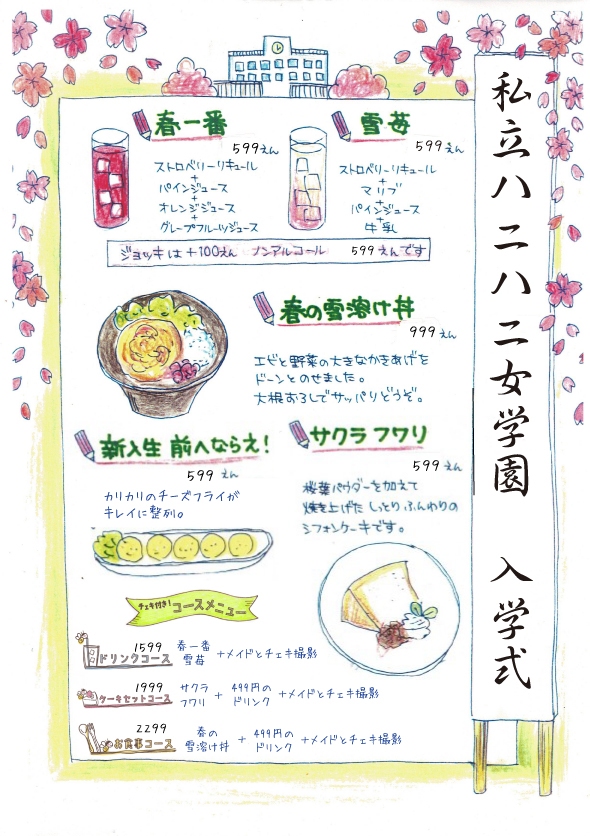 私立ハニハニ女学園　入学式
春一番
599えん
ストロベリーリキュール
+
パインジュース
+
オレンジジュース
+
グレープフルーツジュース
雪苺
599えん
ストロベリーリキュール
+
マリブ
+
パインジュース
+
牛乳
ジョッキは+100えん ノンアルコール 599えんです
春の雪溶け丼
999えん
エビと野菜の大きなかきあげを
ドーンとのせました。
大根おろしでサッパリどうぞ。
新入生 前へならえ!
599えん
カリカリのチーズフライが
キレイに整列。
サクラフワリ
599えん
桜葉パウダーを加えて
焼き上げた しっとりふんわりの
シフォンケーキです。
チェキ付き! コースメニュー
1599
ドリンクコース
春一番
雪苺
+メイドとチェキ撮影
1999
ケーキセットコース
サクラ
フワリ
+
499円の
ドリンク
+メイドとチェキ撮影
2299
お食事コース
春の
雪溶け丼
+
499円の
ドリンク
+メイドとチェキ撮影